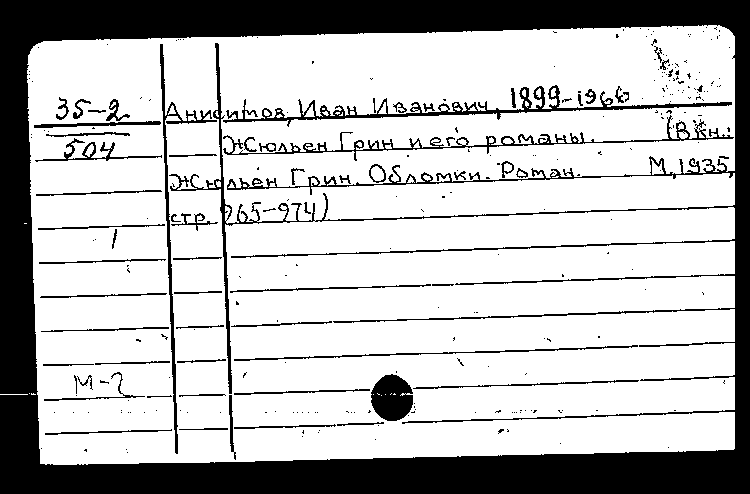 35-2 Анисимов, Иван Иванович, 1899-1966
504 Жюльен Грин и его романы. (В кн.:
Жюльен Грин. Обломки. Роман. М, 1935,
стр. 265-274)
1
М-2